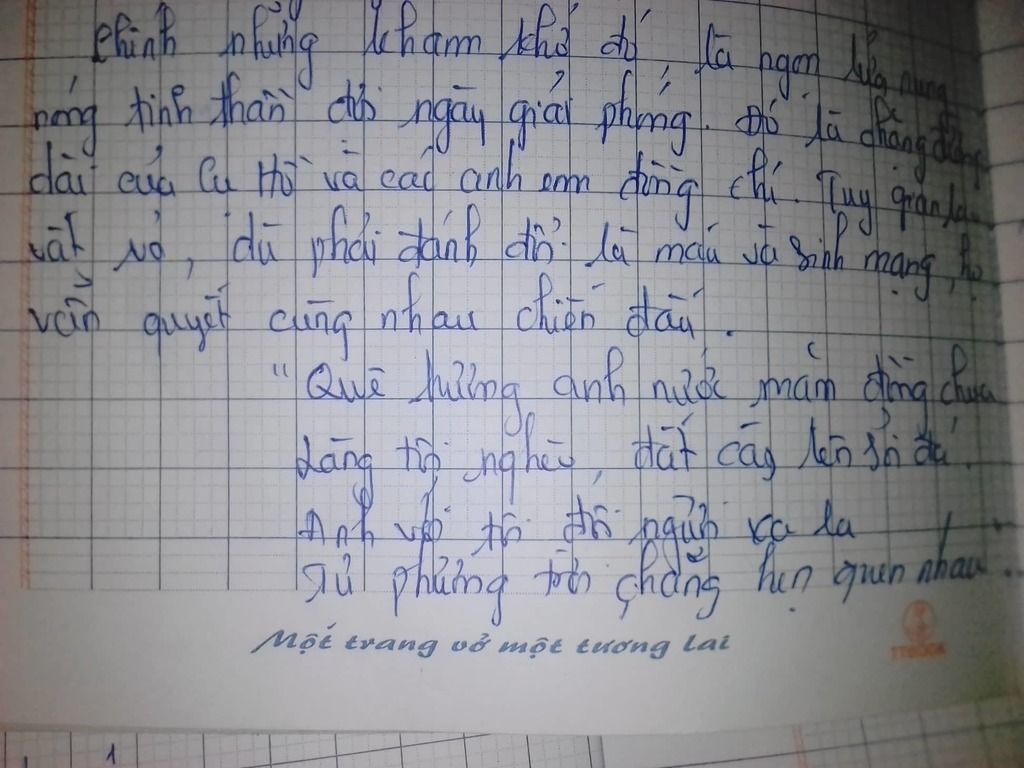 Chính những kham khổ đó, là ngọn lửa nung
nóng tinh thần đợi ngày giải phóng. Đó là chặng đường
dài của Cụ Hồ và các anh em đồng chí. Tuy gian lao
vất vả, dù phải đánh đổi là máu và sinh mạng, họ
vẫn quyết cùng nhau chiến đấu.
"Quê hương anh nước mặn đồng chua
Làng tôi nghèo, đất cày lên sỏi đá.
Anh với tôi đôi người xa lạ
Từ phương trời chẳng hẹn quen nhau...
Một trang vở một tương lai
1